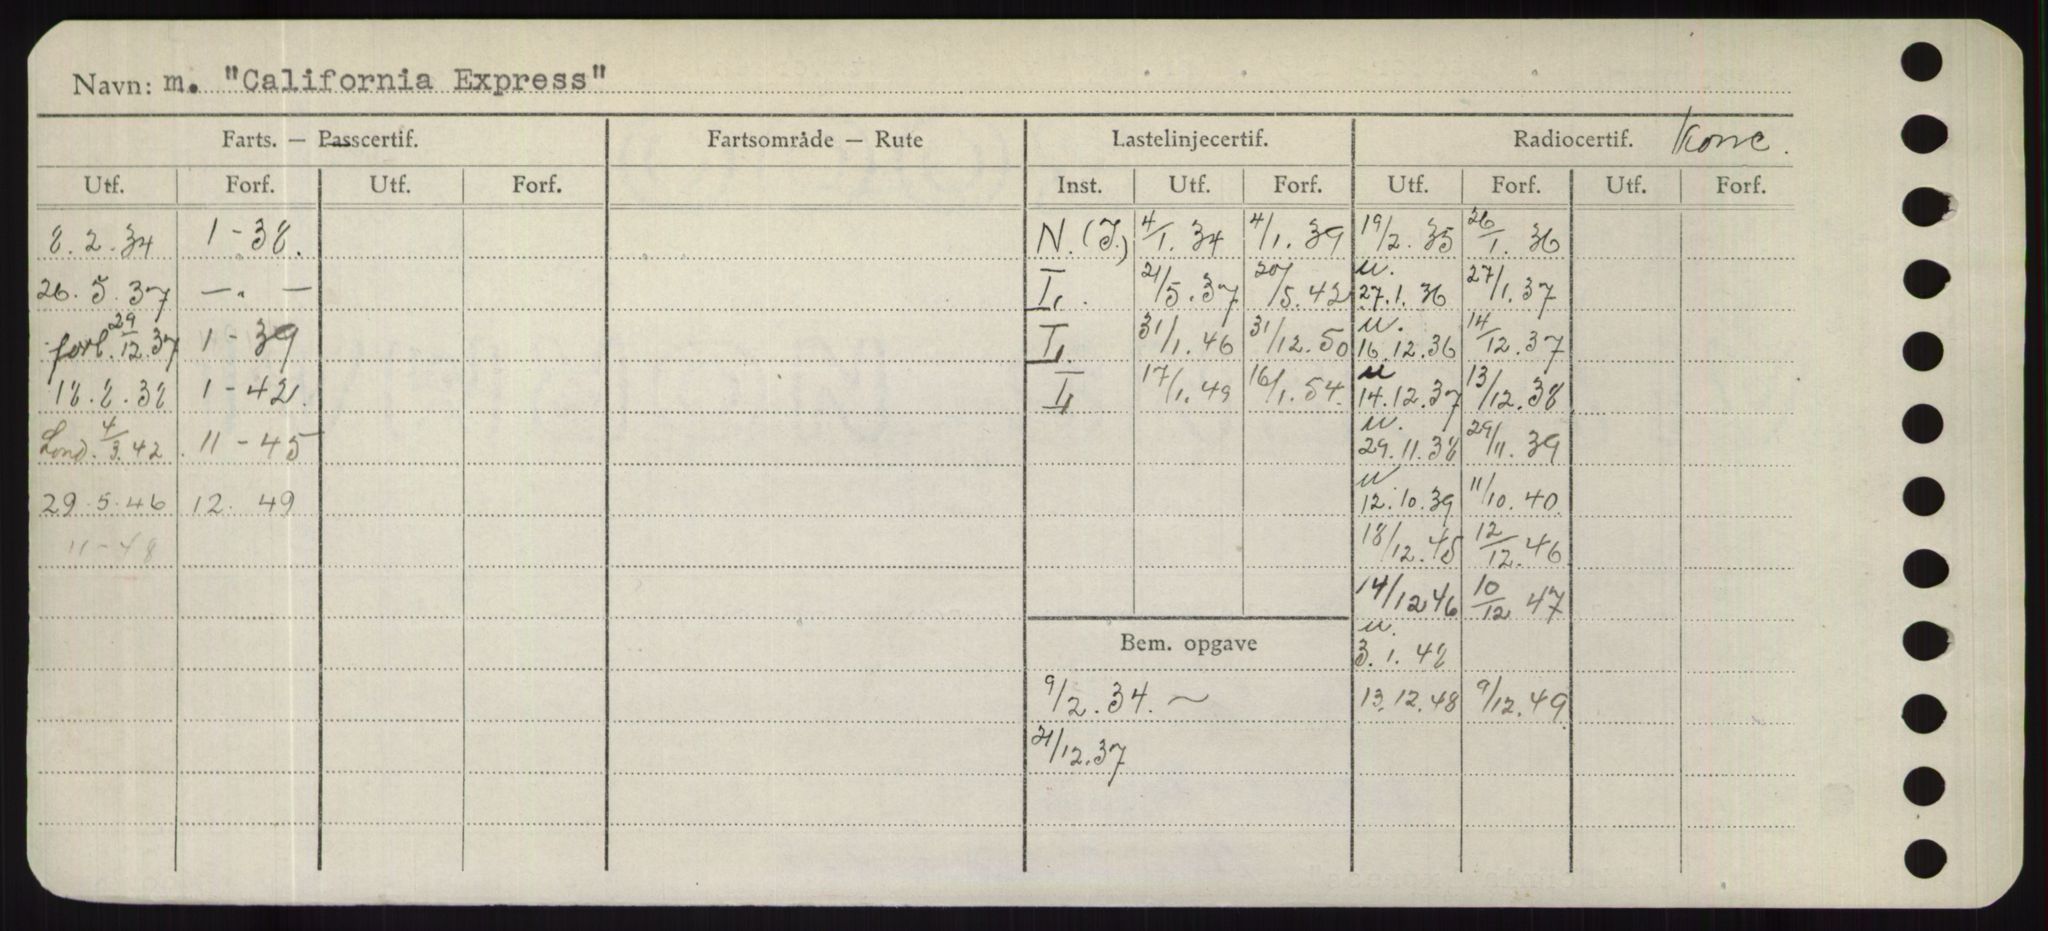 Navn: m. "California Express"
Farts. — Passcertif. Fartsområde — Rute Lastelinjecertif. Radiocertif.
Utf. Forf. Utf. Forf. Inst. Utf. Forf. Utf. Forf. Utf. Forf.
8.2.34 1-38. N.(I.) 4/1.34 4/1.39 19/2.35 26/1.36
26.5.37 —.— I. 21/5.37 20/5.42 u. 27.1.36 27/1.37
forl. 29/12.37 1-39 I. 31/1.46 31/12.50 u. 16.12.36 14/12.37
18.8.38 1-42. I. 17/1.49 16/1.54. u 14.12.37 13/12.38
Lond. 4/3.42. 11-45 u. 29.11.38 29/11.39
29.5.46 12.49 u 12.10.39 11/10.40.
11-48 18/12.45 12/12.46
14/12 46 10/12 47
Bem. opgave u. 3.1.48
9/2.34. ~ 13.12.48 9/12.49
21/12.37